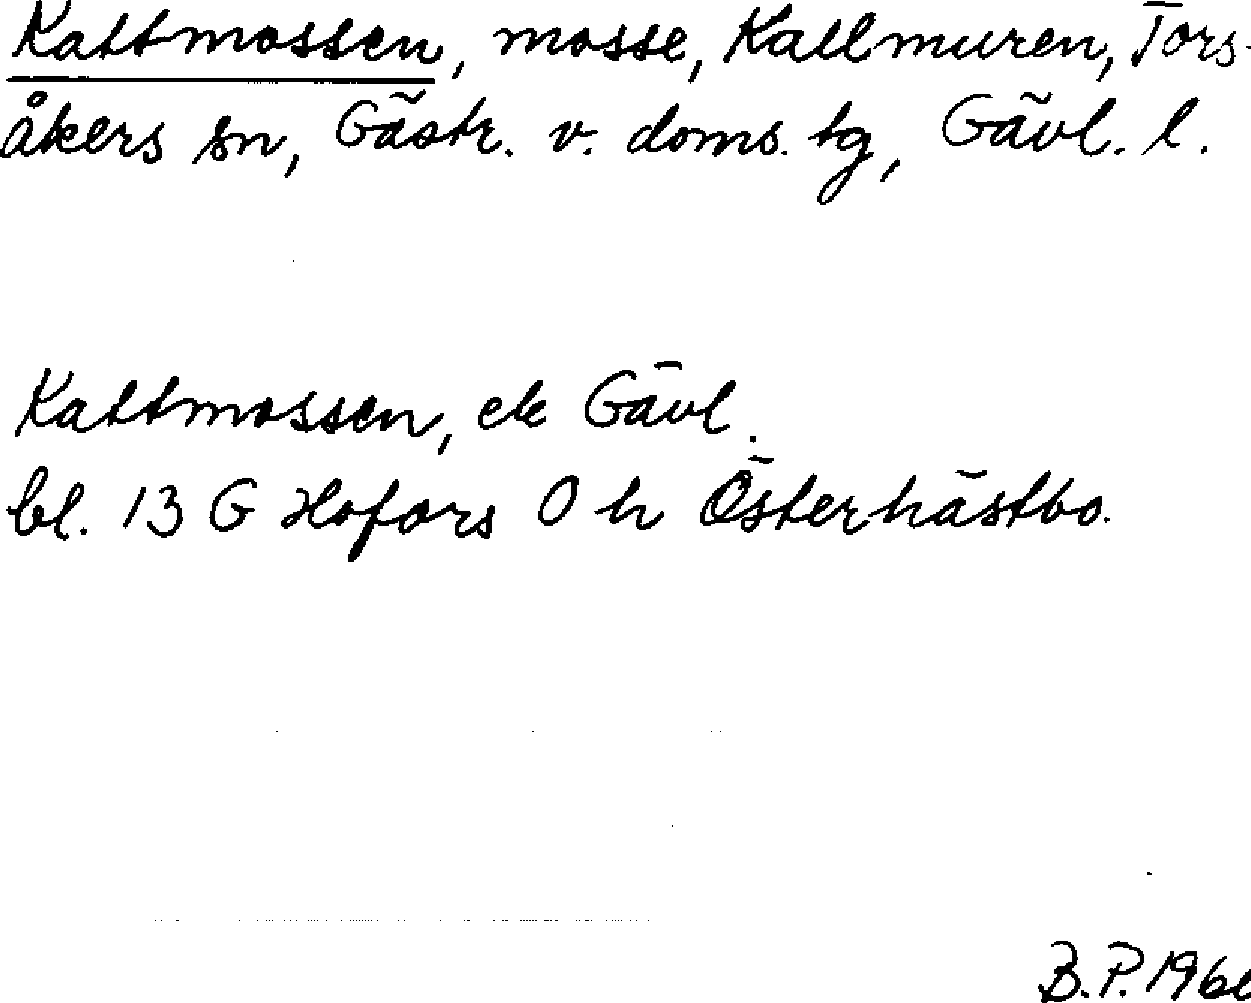 Kattmossen, mosse, Kallmuren, Tors-
åkers sn, Gästr. v. doms. tg, Gävl. l.
Kattmossen, ek Gävl.
bl. 13 G Hofors 0 h Österhästbo.
B.P.